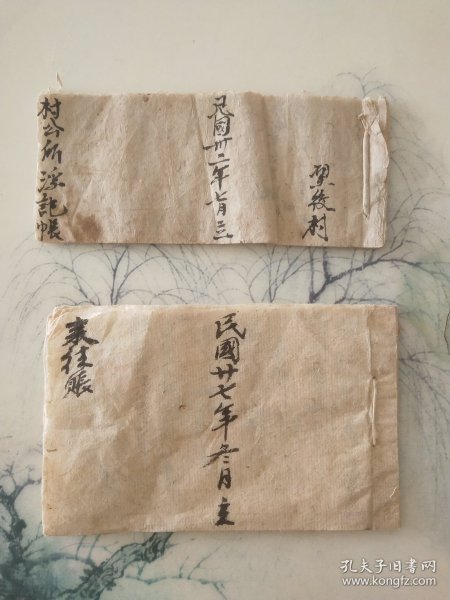 梁後村
民國卅二年七月立
村公所浮記帳
民國廿七年冬月立
來往賬
孔夫子旧书网
www.kongfz.com